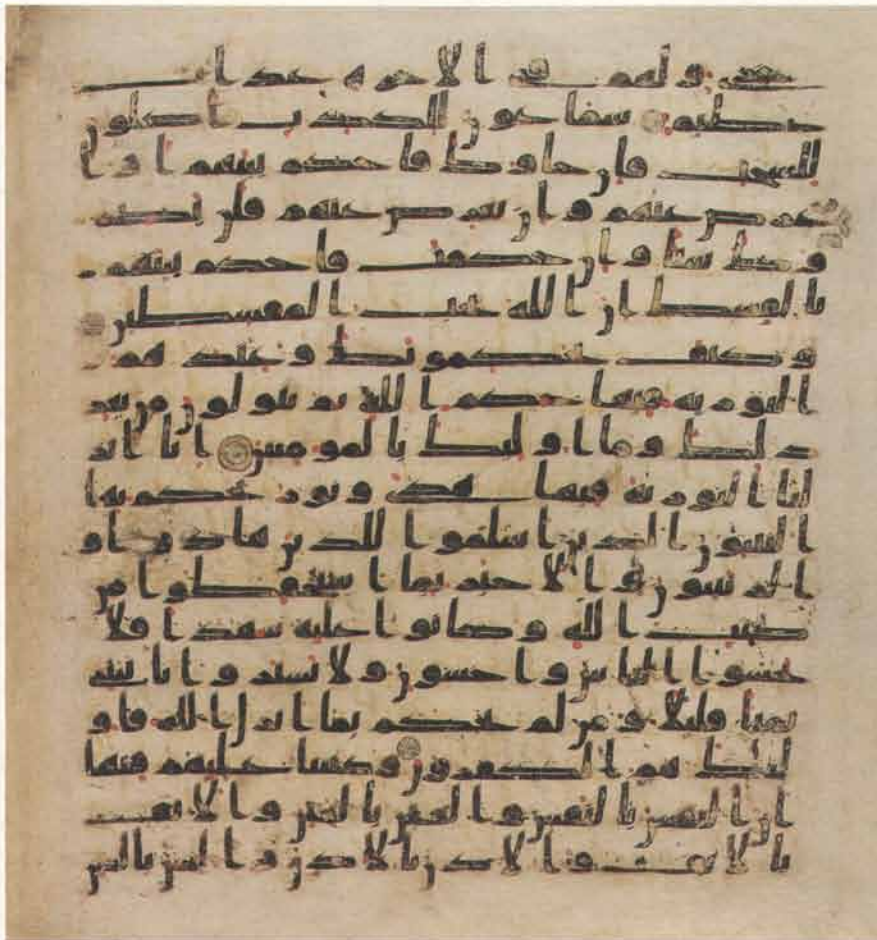 خزي ولهم في الاخرة عذاب
عظيم سماعون للكذب اكلون
للسحت فان جاوك فاحكم بينهم او ا
عرض عنهم وان تعرض عنهم فلن يضر
وك شيا وان حكمت فاحكم بينهم
بالقسط ان الله يحب المقسطين
وكيف يحكمونك وعندهم
التورية فيها حكم الله ثم يتولون من بعد
ذلك وما اوليك بالمومنين انا انز
لنا التورية فيها هدى ونور يحكم بها
النبيون الذين اسلموا للذين هادوا و
الربنيون والاحبار بما استحفظوا من
كتب الله وكانوا عليه شهدا فلا
تخشوا الناس واخشون ولا تشتروا بايتي
ثمنا قليلا ومن لم يحكم بما انزل الله فاو
ليك هم الكفرون وكتبنا عليهم فيها
ان النفس بالنفس والعين بالعين والانف
بالانف والاذن بالاذن والسن بالسن